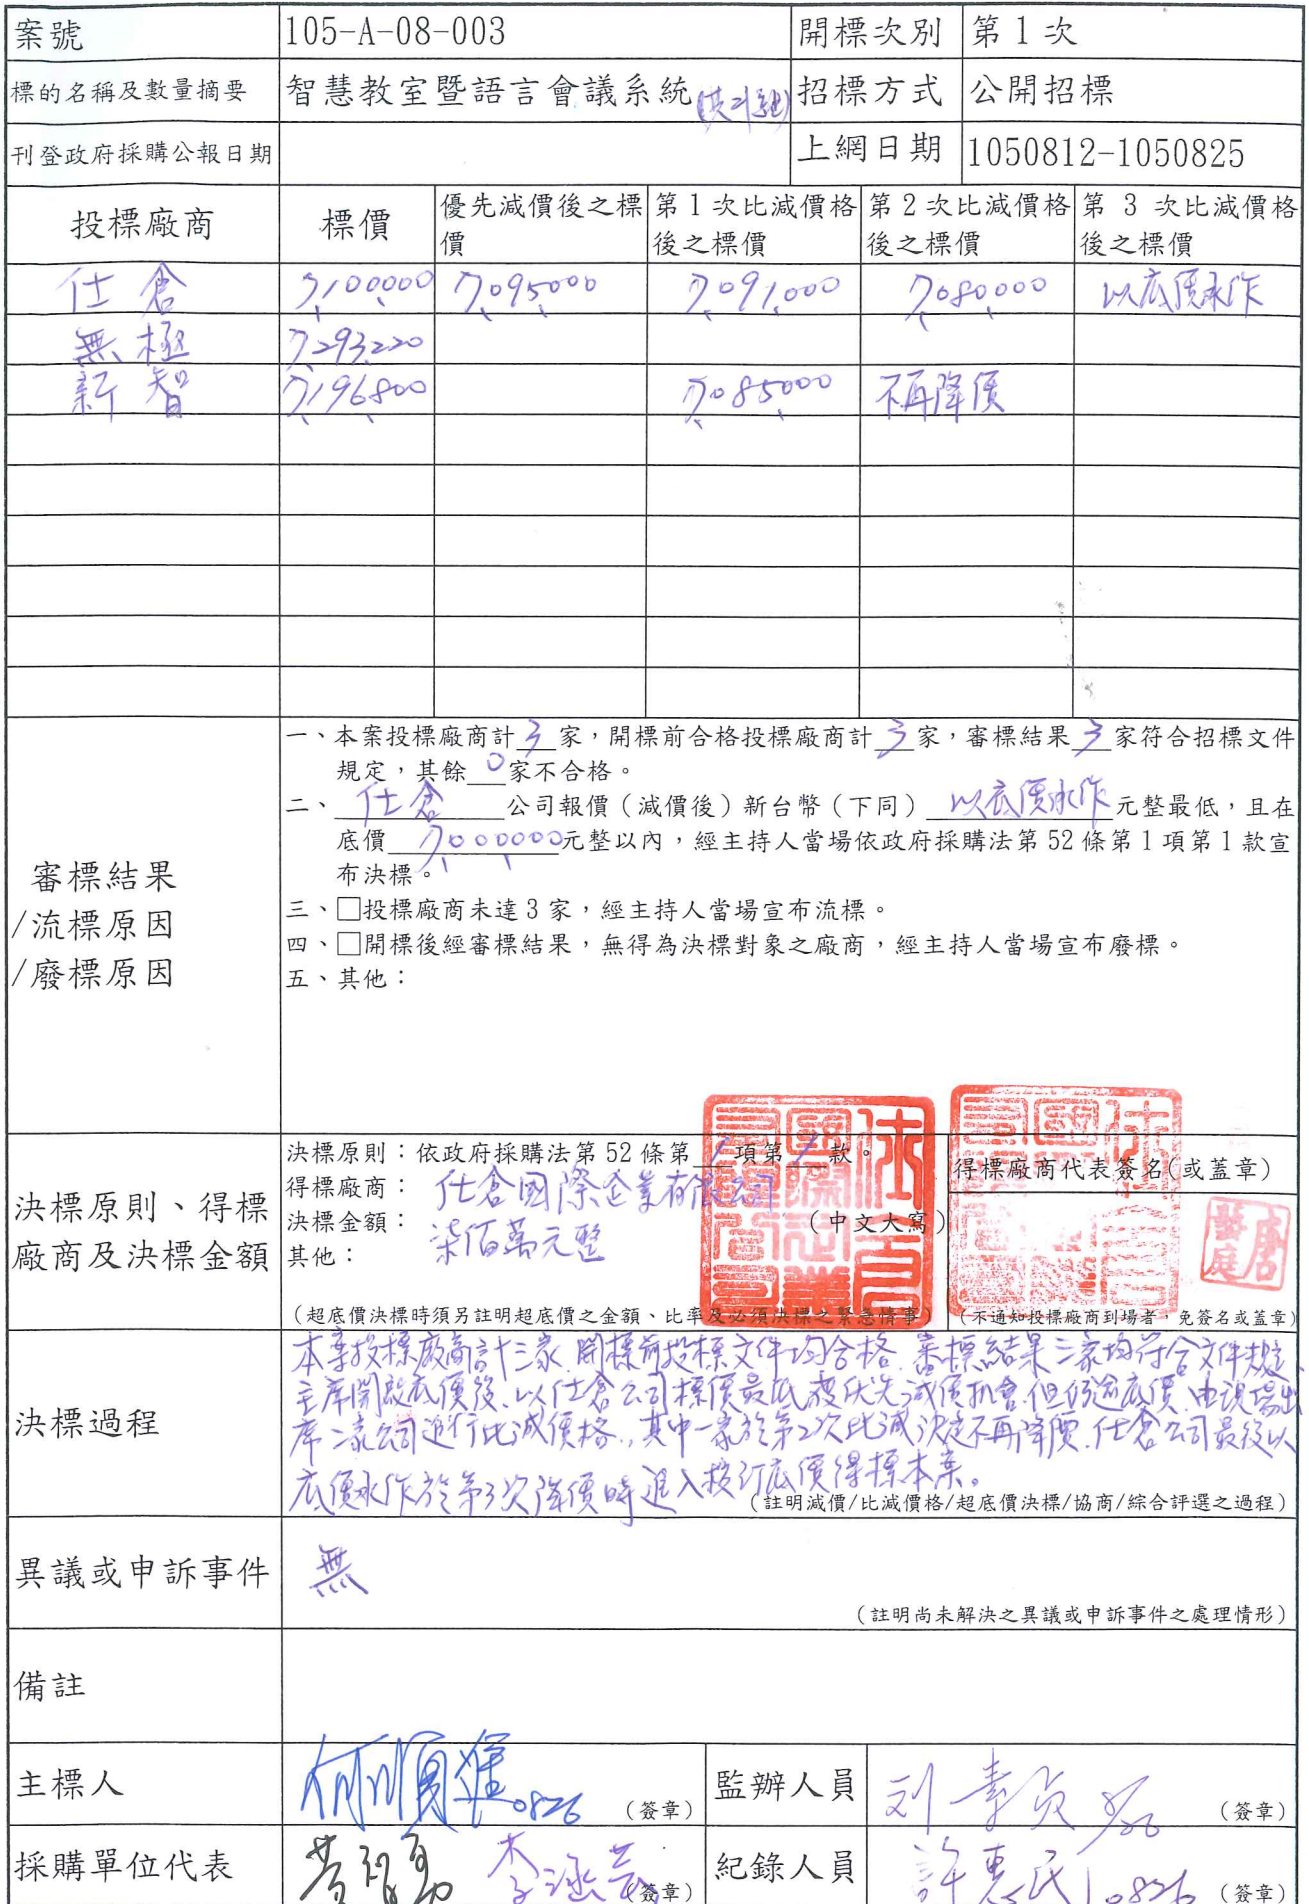 案號 105-A-08-003 開標次別 第1次
標的名稱及數量摘要 智慧教室暨語言會議系統 招標方式 公開招標
刊登政府採購公報日期 上網日期 1050812-1050825
投標廠商 標價 優先減價後之標價 第1次比減價格後之標價 第2次比減價格後之標價 第3次比減價格後之標價
仕倉 7,100,000 7,095,000 7,091,000 7,080,000 以底價承作
無極 7,293,220
新智 7,196,800 7,085,000 不再降價
審標結果
/流標原因
/廢標原因
一、本案投標廠商計3家,開標前合格投標廠商計3家,審標結果3家符合招標文件
規定,其餘0家不合格。
二、仕倉公司報價(減價後)新台幣(下同)以底價承作元整最低,且在
底價7,000,000元整以內,經主持人當場依政府採購法第52條第1項第1款宣
布決標。
三、□投標廠商未達3家,經主持人當場宣布流標。
四、□開標後經審標結果,無得為決標對象之廠商,經主持人當場宣布廢標。
五、其他:
決標原則、得標
廠商及決標金額
決標原則:依政府採購法第52條第1項第1款。
得標廠商:仕倉國際企業有限公司
決標金額:柒佰萬元整(中文大寫)
其他:
(超底價決標時須另註明超底價之金額、比率及必須決標之緊急情事)
得標廠商代表簽名(或蓋章)
(不通知投標廠商到場者,免簽名或蓋章)
決標過程
本案投標廠商計三家,開標前投標文件均合格,審標結果三家均符合文件規定,
主席開啟底價後,以仕倉公司標價最低獲優先減價機會,但仍逾底價,由現場出
席二家公司進行比減價格,其中一家於第2次比減決定不再降價,仕倉公司最後以
底價承作於第3次降價時進入核訂底價得標本案。
(註明減價/比減價格/超底價決標/協商/綜合評選之過程)
異議或申訴事件 無
(註明尚未解決之異議或申訴事件之處理情形)
備註
主標人 何順進 0826 (簽章) 監辦人員 (簽章)
採購單位代表 (簽章) 紀錄人員 許惠民 0826 (簽章)